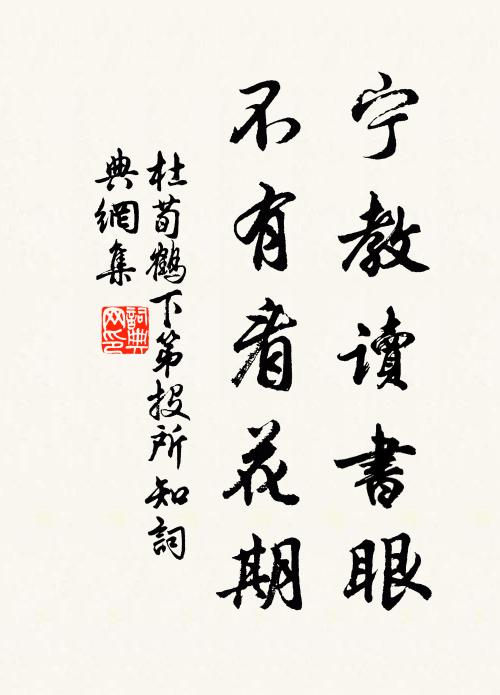 宁教读書眼
不有看花期
杜荀鶴下第投所知詞
典網集
詞典
网印